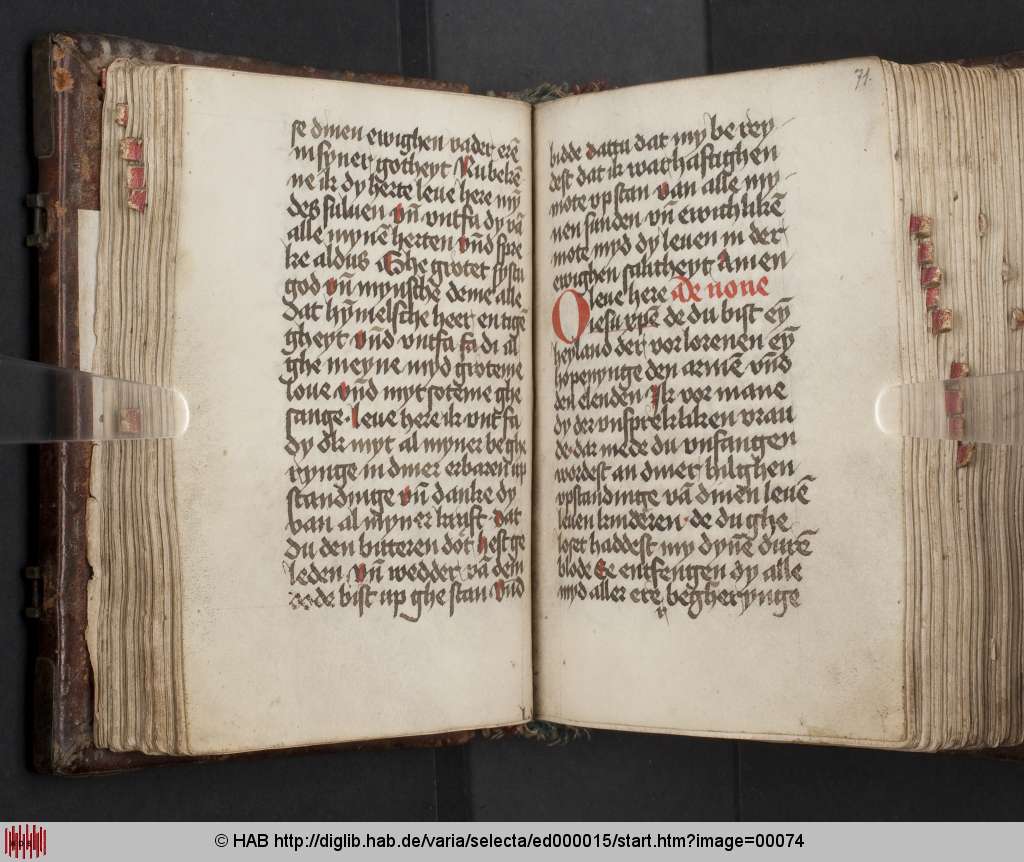 se dinen ewighen vader erē
in syner gotheyt Nu beken
ne ik dy herte leue here mȳ
des suluen vn̄ vntfa dy vā
alle mynē herten vnd spre
ke aldus Ghe grotet systu
god vn̄ mynsche deme alle
dat hȳmelsche heer en tigē
gheyt vn̄d vntfa fa di al
ghe meyne myd groteme
loue vn̄d myt soteme ghe
sange leue here ik vnt fa
dy ok myt al myner beghe
rynge in diner erbaren up
standinge vn̄ danke dy
van al myner kraft dat
du den bitteren dot hest ge
leden vn̄ wedder vā dem
de bist up ghe stan vnd
71.
bidde dattu dat my be rey
dest dat ik warhaftighen
mote vpstan van alle my
nen sunden vn̄ ewichlikē
mote myd dy leuen in der
ewighen salicheyt Amen
leue here De none
O iesu xpē de du bist eȳ
heyland der vorlorenen eȳ
hopenynge den armen vn̄d
den elenden Ik vor mane
dy der vnsprekliken vrau
de dar mede du vnfangen
wordest an diner hilghen
vpstandinge vā dinen leuē
leuen kinderen de du ghe
loset haddest my dynē durē
blode Se entfengen dy alle
myd aller ere begherynge
© HAB http://diglib.hab.de/varia/selecta/ed000015/start.htm?image=00074